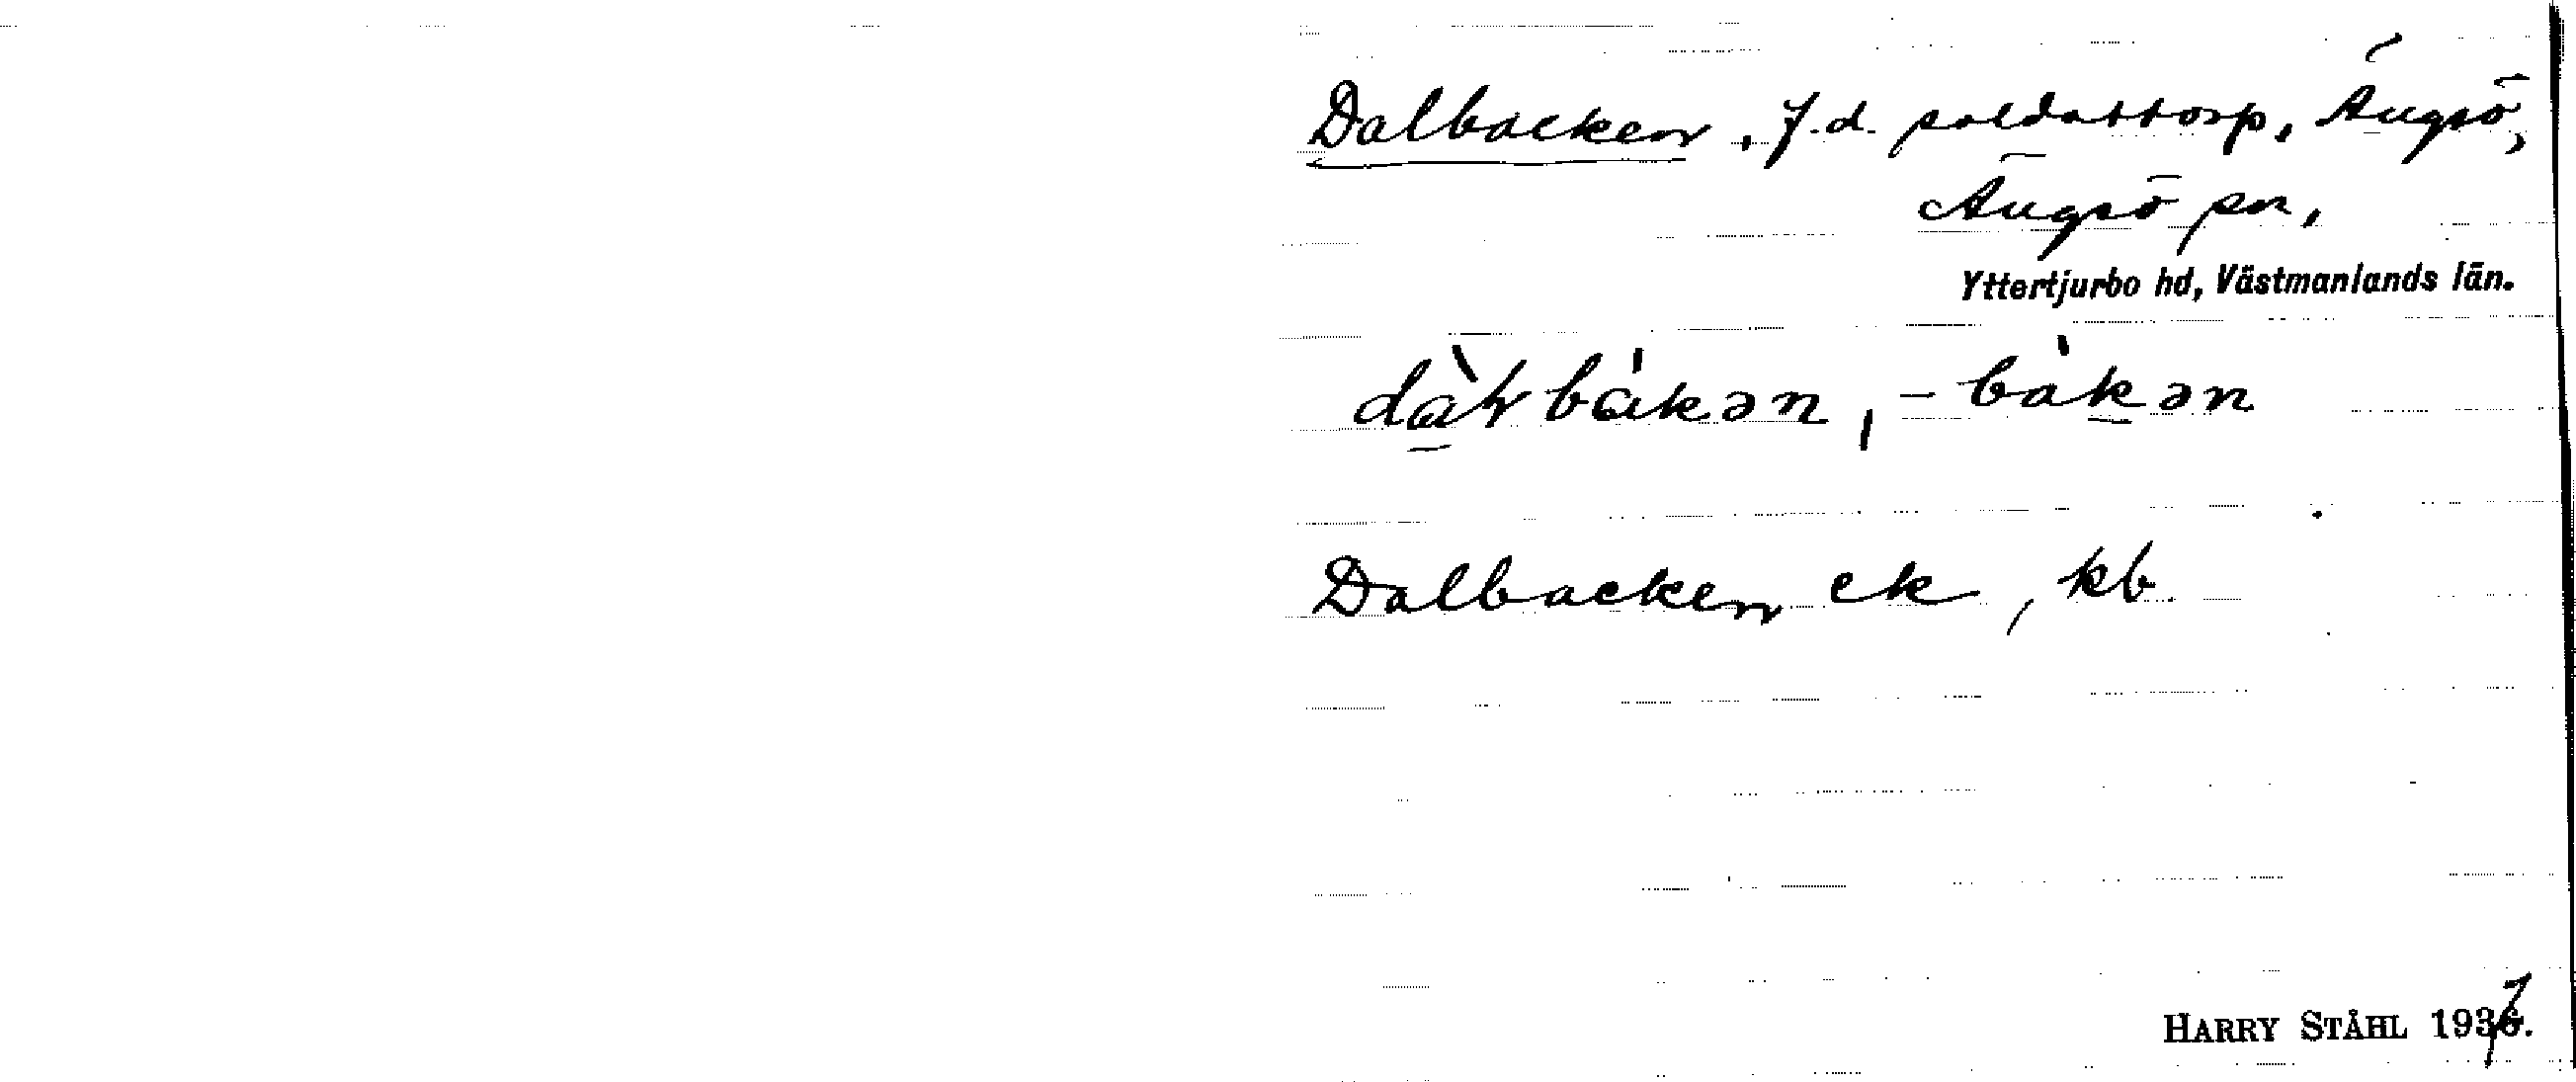 Dalbacken, f.d. soldattorp, Ängsö,
Ängsö sn,
Yttertjurbo hd, Västmanlands län.
dàɫbàkən, -bàkən
Dalbacken ek, kb
HARRY STÅHL 1937.